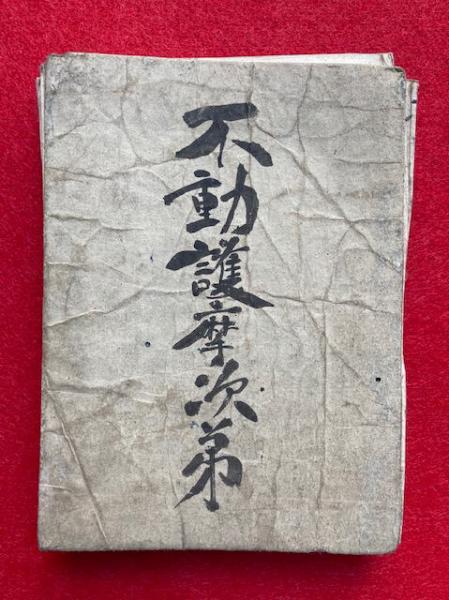 不動護摩次第